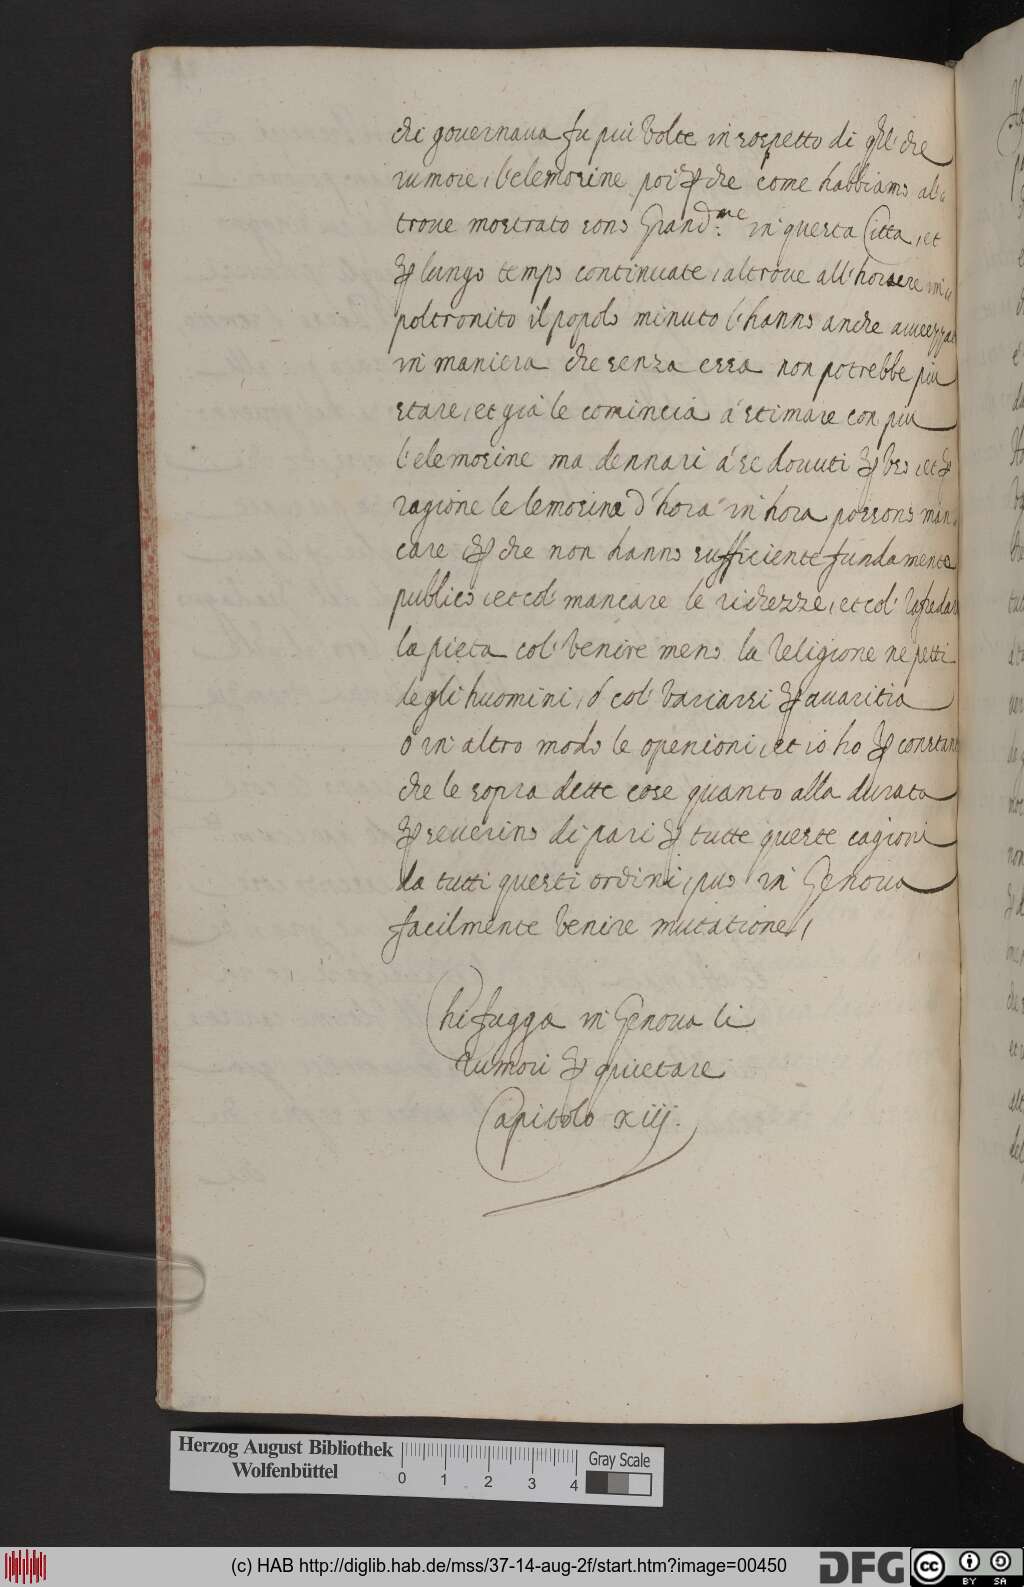 chi governava fu più volte in sospetto di qll' che
rumore, l'elemosine poi ꝑ che come habbiamo al=
trove mostrato sono Grand.me in questa Città, et
ꝑ lungo tempo continuate, altrove all'
poltronito il popolo minuto l'hanno anche avvezzato
in maniera che senza essa non potrebbe più
stare, et già le comincia à stimare con più
l'elemosine ma dennari à se dovuti ꝑ uso, et ꝑ
ragione le lemosine d'hora in hora possono man=
care ꝑ che non hanno sufficiente fundamento
publico, et col' mancare le richezze, et col'
la pietà col' venire meno la religione ne petti
degli huomini, ó col' variarsi ꝑ avaritia
ó in altro modo le openioni, et io ho ꝑ constante
che le sopra dette cose quanto alla durata
ꝑ severino di pari ꝑ tutte queste cagioni
da tutti questi ordini, puo in Genova
facilmente venire mutatione,
Chi fugga in Genova li
rumori ꝑ quietare
Capitolo xiij.
Herzog August Bibliothek
Wolfenbüttel
0 1 2 3 4
Gray Scale
(c) HAB http://diglib.hab.de/mss/37-14-aug-2f/start.htm?image=00450
DFG
cc BY SA